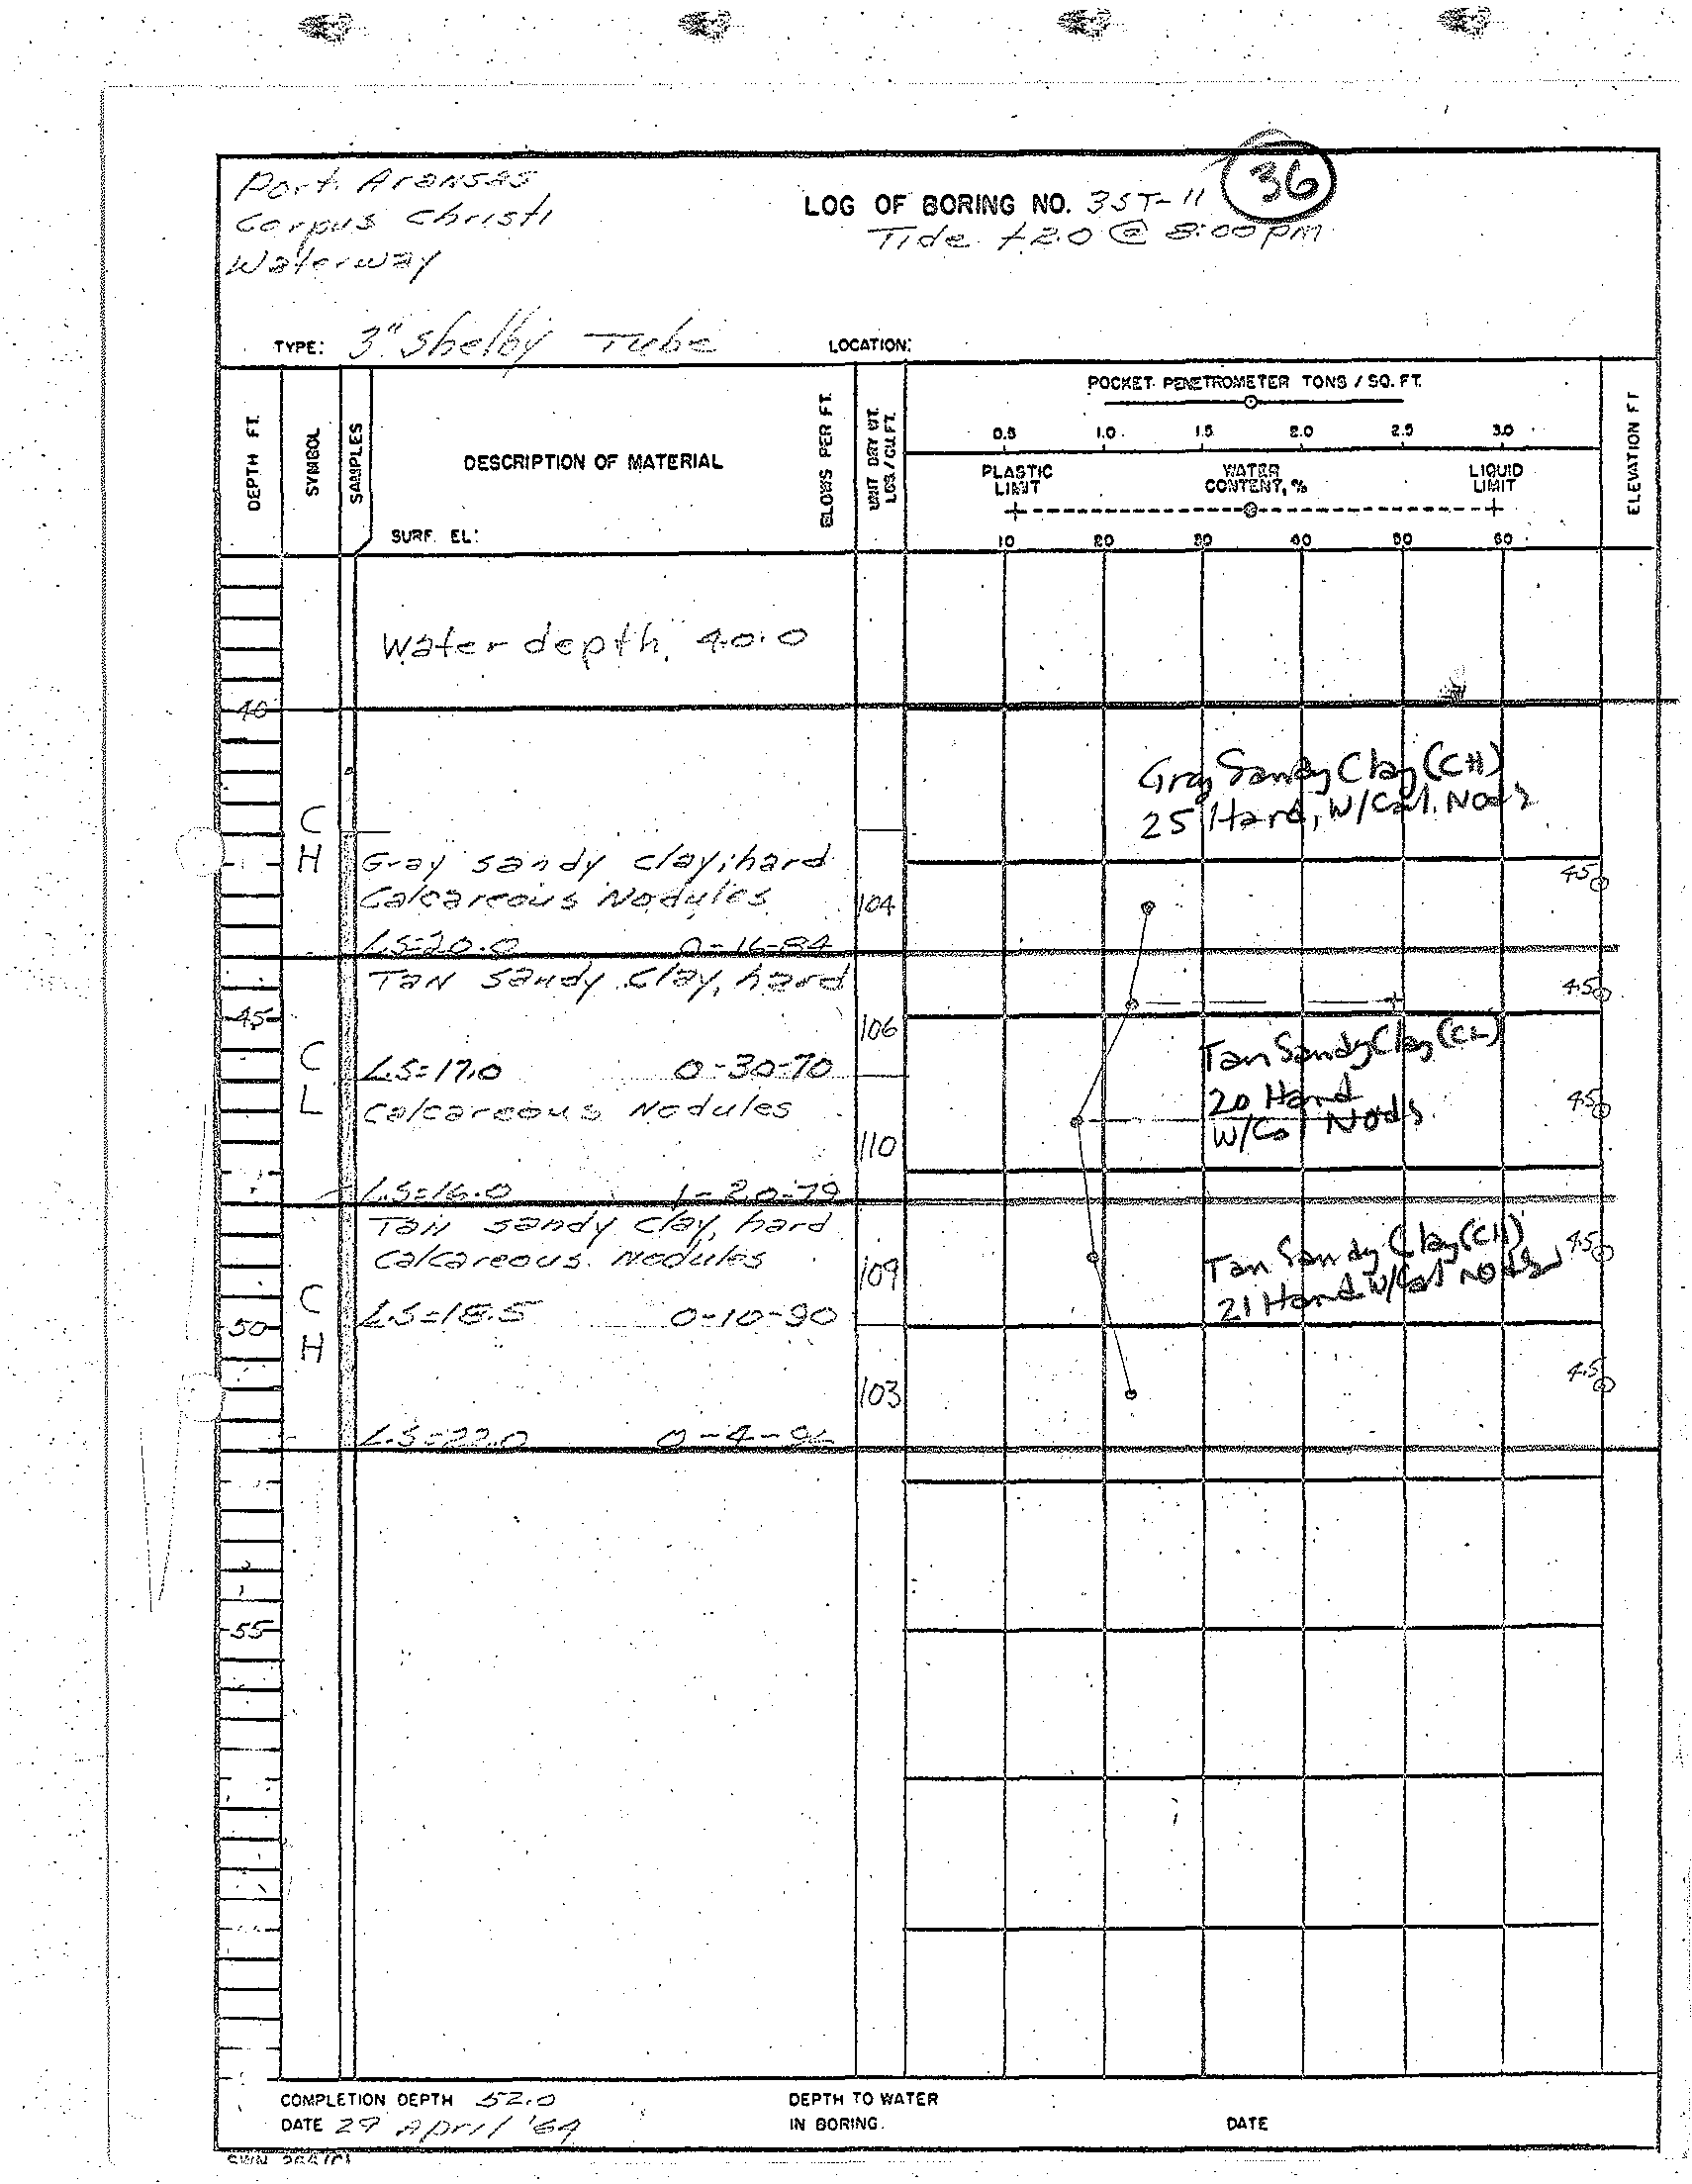 Port Aransas
Corpus Christi
Waterway
LOG OF BORING NO. 3ST-11
36
Tide +2.0 @ 8:00pm
TYPE: 3" Shelby Tube
LOCATION:
DEPTH FT.
SYMBOL
SAMPLES
DESCRIPTION OF MATERIAL
SURF. EL:
BLOWS PER FT.
UNIT DRY WT.
LBS./CU.FT.
POCKET PENETROMETER TONS / SQ. FT.
0.5 1.0 1.5 2.0 2.5 3.0
PLASTIC LIMIT
WATER CONTENT, %
LIQUID LIMIT
10 20 30 40 50 60
ELEVATION FT
Water depth, 40.0
40
Gray Sandy Clay (CH)
25 Hard, W/Cal. Nods
CH
Gray sandy clay; hard
Calcareous Nodules
104
4.5
LS=20.0 0-16-84
Tan sandy clay, hard
4.5
45
106
Tan Sandy Clay (CL)
20 Hard
W/Cal Nods.
CL
LS=17.0 0-30-70
Calcareous Nodules
4.5
110
LS=16.0 1-20-79
Tan sandy clay, hard
Calcareous Nodules
109
Tan Sandy Clay (CH)
21 Hard W/Cal Nods
4.5
CH
LS=18.5 0-10-90
50
103
4.5
LS=22.0 0-4-96
55
COMPLETION DEPTH 52.0
DATE 29 April '64
DEPTH TO WATER
IN BORING.
DATE